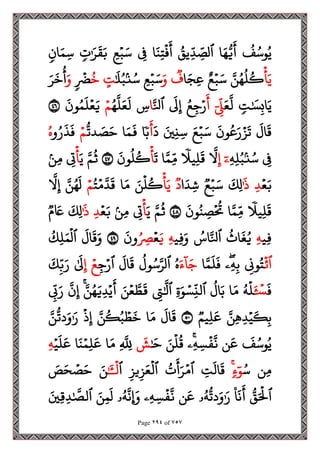 يُوسُفُ أَيُّهَا ٱلصِّدِّيقُ أَفْتِنَا فِى سَبْعِ بَقَرَٰتٍ سِمَانٍ
يَأْكُلُهُنَّ سَبْعٌ عِجَافٌ وَسَبْعِ سُنۢبُلَٰتٍ خُضْرٍ وَأُخَرَ
يَابِسَٰتٍ لَّعَلِّىٓ أَرْجِعُ إِلَى ٱلنَّاسِ لَعَلَّهُمْ يَعْلَمُونَ ٤٦
قَالَ تَزْرَعُونَ سَبْعَ سِنِينَ دَأَبًا فَمَا حَصَدتُّمْ فَذَرُوهُ
فِى سُنۢبُلِهِۦٓ إِلَّا قَلِيلًا مِّمَّا تَأْكُلُونَ ٤٧ ثُمَّ يَأْتِى مِنۢ
بَعْدِ ذَٰلِكَ سَبْعٌ شِدَادٌ يَأْكُلْنَ مَا قَدَّمْتُمْ لَهُنَّ إِلَّا
قَلِيلًا مِّمَّا تُحْصِنُونَ ٤٨ ثُمَّ يَأْتِى مِنۢ بَعْدِ ذَٰلِكَ عَامٌ
فِيهِ يُغَاثُ ٱلنَّاسُ وَفِيهِ يَعْصِرُونَ ٤٩ وَقَالَ ٱلْمَلِكُ
ٱئْتُونِى بِهِۦ فَلَمَّا جَآءَهُ ٱلرَّسُولُ قَالَ ٱرْجِعْ إِلَىٰ رَبِّكَ
فَسْـَٔلْهُ مَا بَالُ ٱلنِّسْوَةِ ٱلَّٰتِى قَطَّعْنَ أَيْدِيَهُنَّ إِنَّ رَبِّى
بِكَيْدِهِنَّ عَلِيمٌ ٥٠ قَالَ مَا خَطْبُكُنَّ إِذْ رَٰوَدتُّنَّ
يُوسُفَ عَن نَّفْسِهِۦ قُلْنَ حَٰشَ لِلَّهِ مَا عَلِمْنَا عَلَيْهِ
مِن سُوٓءٍ قَالَتِ ٱمْرَأَتُ ٱلْعَزِيزِ ٱلْـَٰٔنَ حَصْحَصَ
ٱلْحَقُّ أَنَا۠ رَٰوَدتُّهُۥ عَن نَّفْسِهِۦ وَإِنَّهُۥ لَمِنَ ٱلصَّٰدِقِينَ
Page ٢٩٤ of ٧٥٧